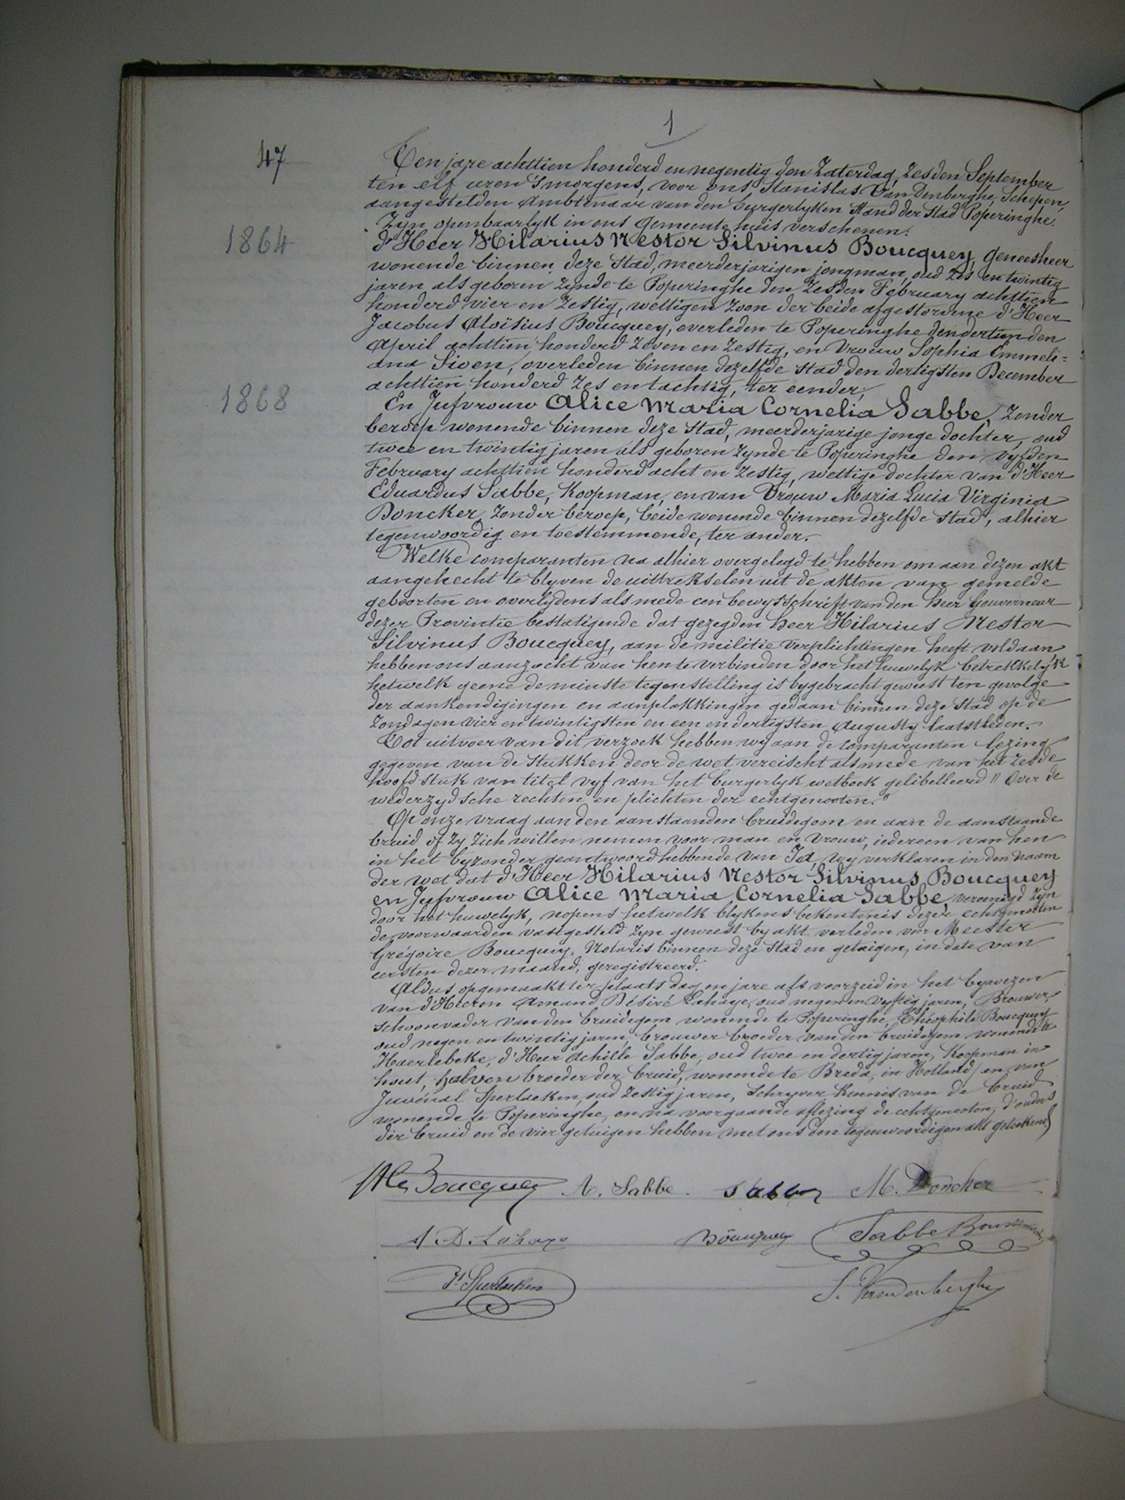 1
47
Ten jare achttien honderd en negentig den Zaterdag, zesden September
ten elf uren s'morgens, voor ons Stanislas Van Denberghe, Schepen,
aangestelden Ambtenaar van den burgerlyken Stand der Stad Poperinghe
Zyn openbaarlyk in ons Gemeentehuis verschenen:
1864
d'Heer Hilarius Nestor Silvinus Boucquey, geneesheer
wonende binnen deze Stad, meerderjarigen jongman, oud zes en twintig
jaren als geboren zynde te Poperinghe den zesden February achttien
honderd vier en zestig, wettigen zoon der beide afgestorvene d'Heer
Jacobus Aloïsius Boucquey, overleden te Poperinghe den dertienden
April achttien honderd zeven en zestig, en Vrouw Sophia Emmeli=
ana Sioen, overleden binnen dezelfde stad den dertigsten December
achttien honderd zes en tachtig, ter eender;
1868
En Jufvrouw Alice Maria Cornelia Sabbe, zonder
beroep wonende binnen deze Stad, meerderjarige jonge dochter, oud
twee en twintig jaren als geboren zynde te Poperinghe den vyfden
February achttien honderd acht en zestig, wettige dochter van d'Heer
Eduardus Sabbe, Koopman, en van Vrouw Maria Lucia Virginia
Doncker, zonder beroep, beide wonende binnen dezelfde stad, alhier
tegenwoordig en toestemmende, ter ander.
Welke comparanten na alhier overgelegd te hebben om aan dezen akt
aangehecht te blyven de uittrekselen uit de akten van gemelde
geboorten en overlydens als mede een bewysschrift van den heer Gouverneur
dezer Provintie bestatigende dat gezegden heer Hilarius Nestor
Silvinus Boucquey, aan de militie verplichtingen heeft voldaan
hebben ons aanzocht van hen te verbinden door het huwelyk betrekkelyk
hetwelk geene de minste tegenstelling is bygebracht geweest ten gevolge
der aankondigingen en aanplakkingen gedaan binnen deze Stad op de
Zondagen vier en twintigsten en een en dertigsten Augusty laatstleden.
Tot uitvoer van dit verzoek hebben wy aan de comparanten lezing
gegeven van de Stukken door de wet vereischt alsmede van het zesde
hoofdstuk van titel vyf van het burgerlyk wetboek gelibelleerd " Over de
wederzydsche rechten en plichten der echtgenooten."
Op onze vraag aan den aanstaanden bruidegom en aan de aanstaande
bruid of zy zich willen nemen voor man en vrouw, iedereen van hen
in het byzonder geantwoord hebbende van Ja, wy verklaren in den naam
der wet dat d'Heer Hilarius Nestor Silvinus Boucquey
en Jufvrouw Alice Maria Cornelia Sabbe, vereenigd zyn
door het huwelyk, nopens hetwelk blykens bekentenis dezer echtgenooten
de voorwaarden vastgesteld zyn geweest by akt verleden voor Meester
Grégoire Boucquey, Notaris binnen deze Stad en getuigen, in date van
eersten dezer maand, geregistreerd.
Aldus opgemaakt ter plaats dag en jare als voorzeid in het bywezen
van d'Heeren Amand Désiré Lahaye, oud negen en vyftig jaren, Brouwer
schoonvader van den bruidegom wonende te Poperinghe, Théophile Boucquey
oud negen en twintig jaren, brouwer broeder van den bruidegom, wonende te
Haerlebeke, d'Heer Achille Sabbe, oud twee en dertig jaren, Koopman in
hout, halven broeder der bruid, wonende te Breda, in Holland, en van
Juvenal Sperlaeken, oud zestig jaren, Schryver Kennis van de bruid
wonende te Poperinghe, en na voorgaande aflezing de echtgenooten, d'ouders
der bruid en de vier getuigen hebben met ons den tegenwoordigen akt geteekend
Boucquey A. Sabbe. Sabbe M. Doncker
A D. Lahaye Boucquey Sabbe
Sperlaeken S. Vandenberghe